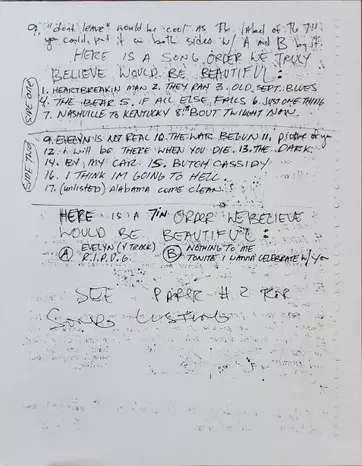 9. "don't leave" would be cool as the label of the 7in
you could put it on both sides w/ A and B by it.
HERE IS A SONG ORDER WE TRULY
BELIEVE WOULD BE BEAUTIFUL:
SIDE ONE
1. HEARTBREAKIN MAN 2. THEY RAN 3. OLD SEPT. BLUES
4. THE BEAR 5. IF ALL ELSE FAILS 6. JUST ONE THING
7. NASHVILLE TO KENTUCKY 8. 'BOUT TWILIGHT NOW.
SIDE TWO
9. EVELYN IS NOT REAL 10. THE WAR BEGUN 11. picture of you
12. i will BE THERE WHEN YOU DIE. 13. THE DARK.
14. BY MY CAR. 15. BUTCH CASSIDY
16. I THINK IM GOING TO HELL.
17. (unlisted) Alabama come clean.
HERE IS A 7in ORDER WE BELIEVE
WOULD BE BEAUTIFUL:
A EVELYN (4 TRACK) B NOTHING TO ME
R.I.P.V.G. TONITE I WANNA CELEBRATE w/ you
SEE PAPER #2 FOR
SONG LISTING